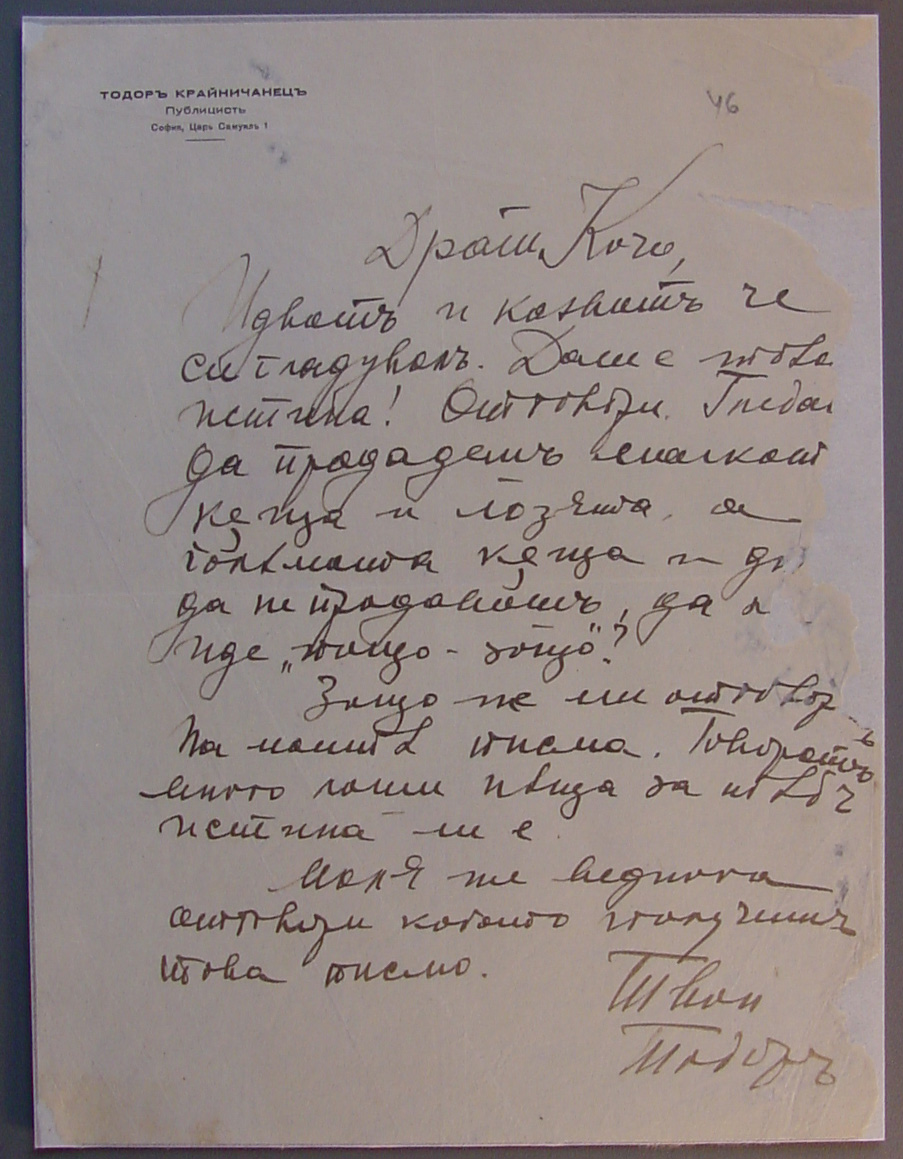 ТОДОРЪ КРАЙНИЧАНЕЦЪ
Публицистъ
София, Царь Самуилъ 1
46
Драги Кочо,
Идватъ и казватъ че
си гладувалъ. Дали е това
истина! Отговори. Трѣба
да продадешъ
кѫща и лозята, а
голѣмата кѫща и
да не продавашъ, да
иде „нащо-зощо"?
Зощо не ми отговор
на моитѣ писма. Говорятъ
много лоши нѣща за тѣбъ
истина ли е
Моля те веднага
отговори когато получишъ
това писмо.
Твой
Тодоръ